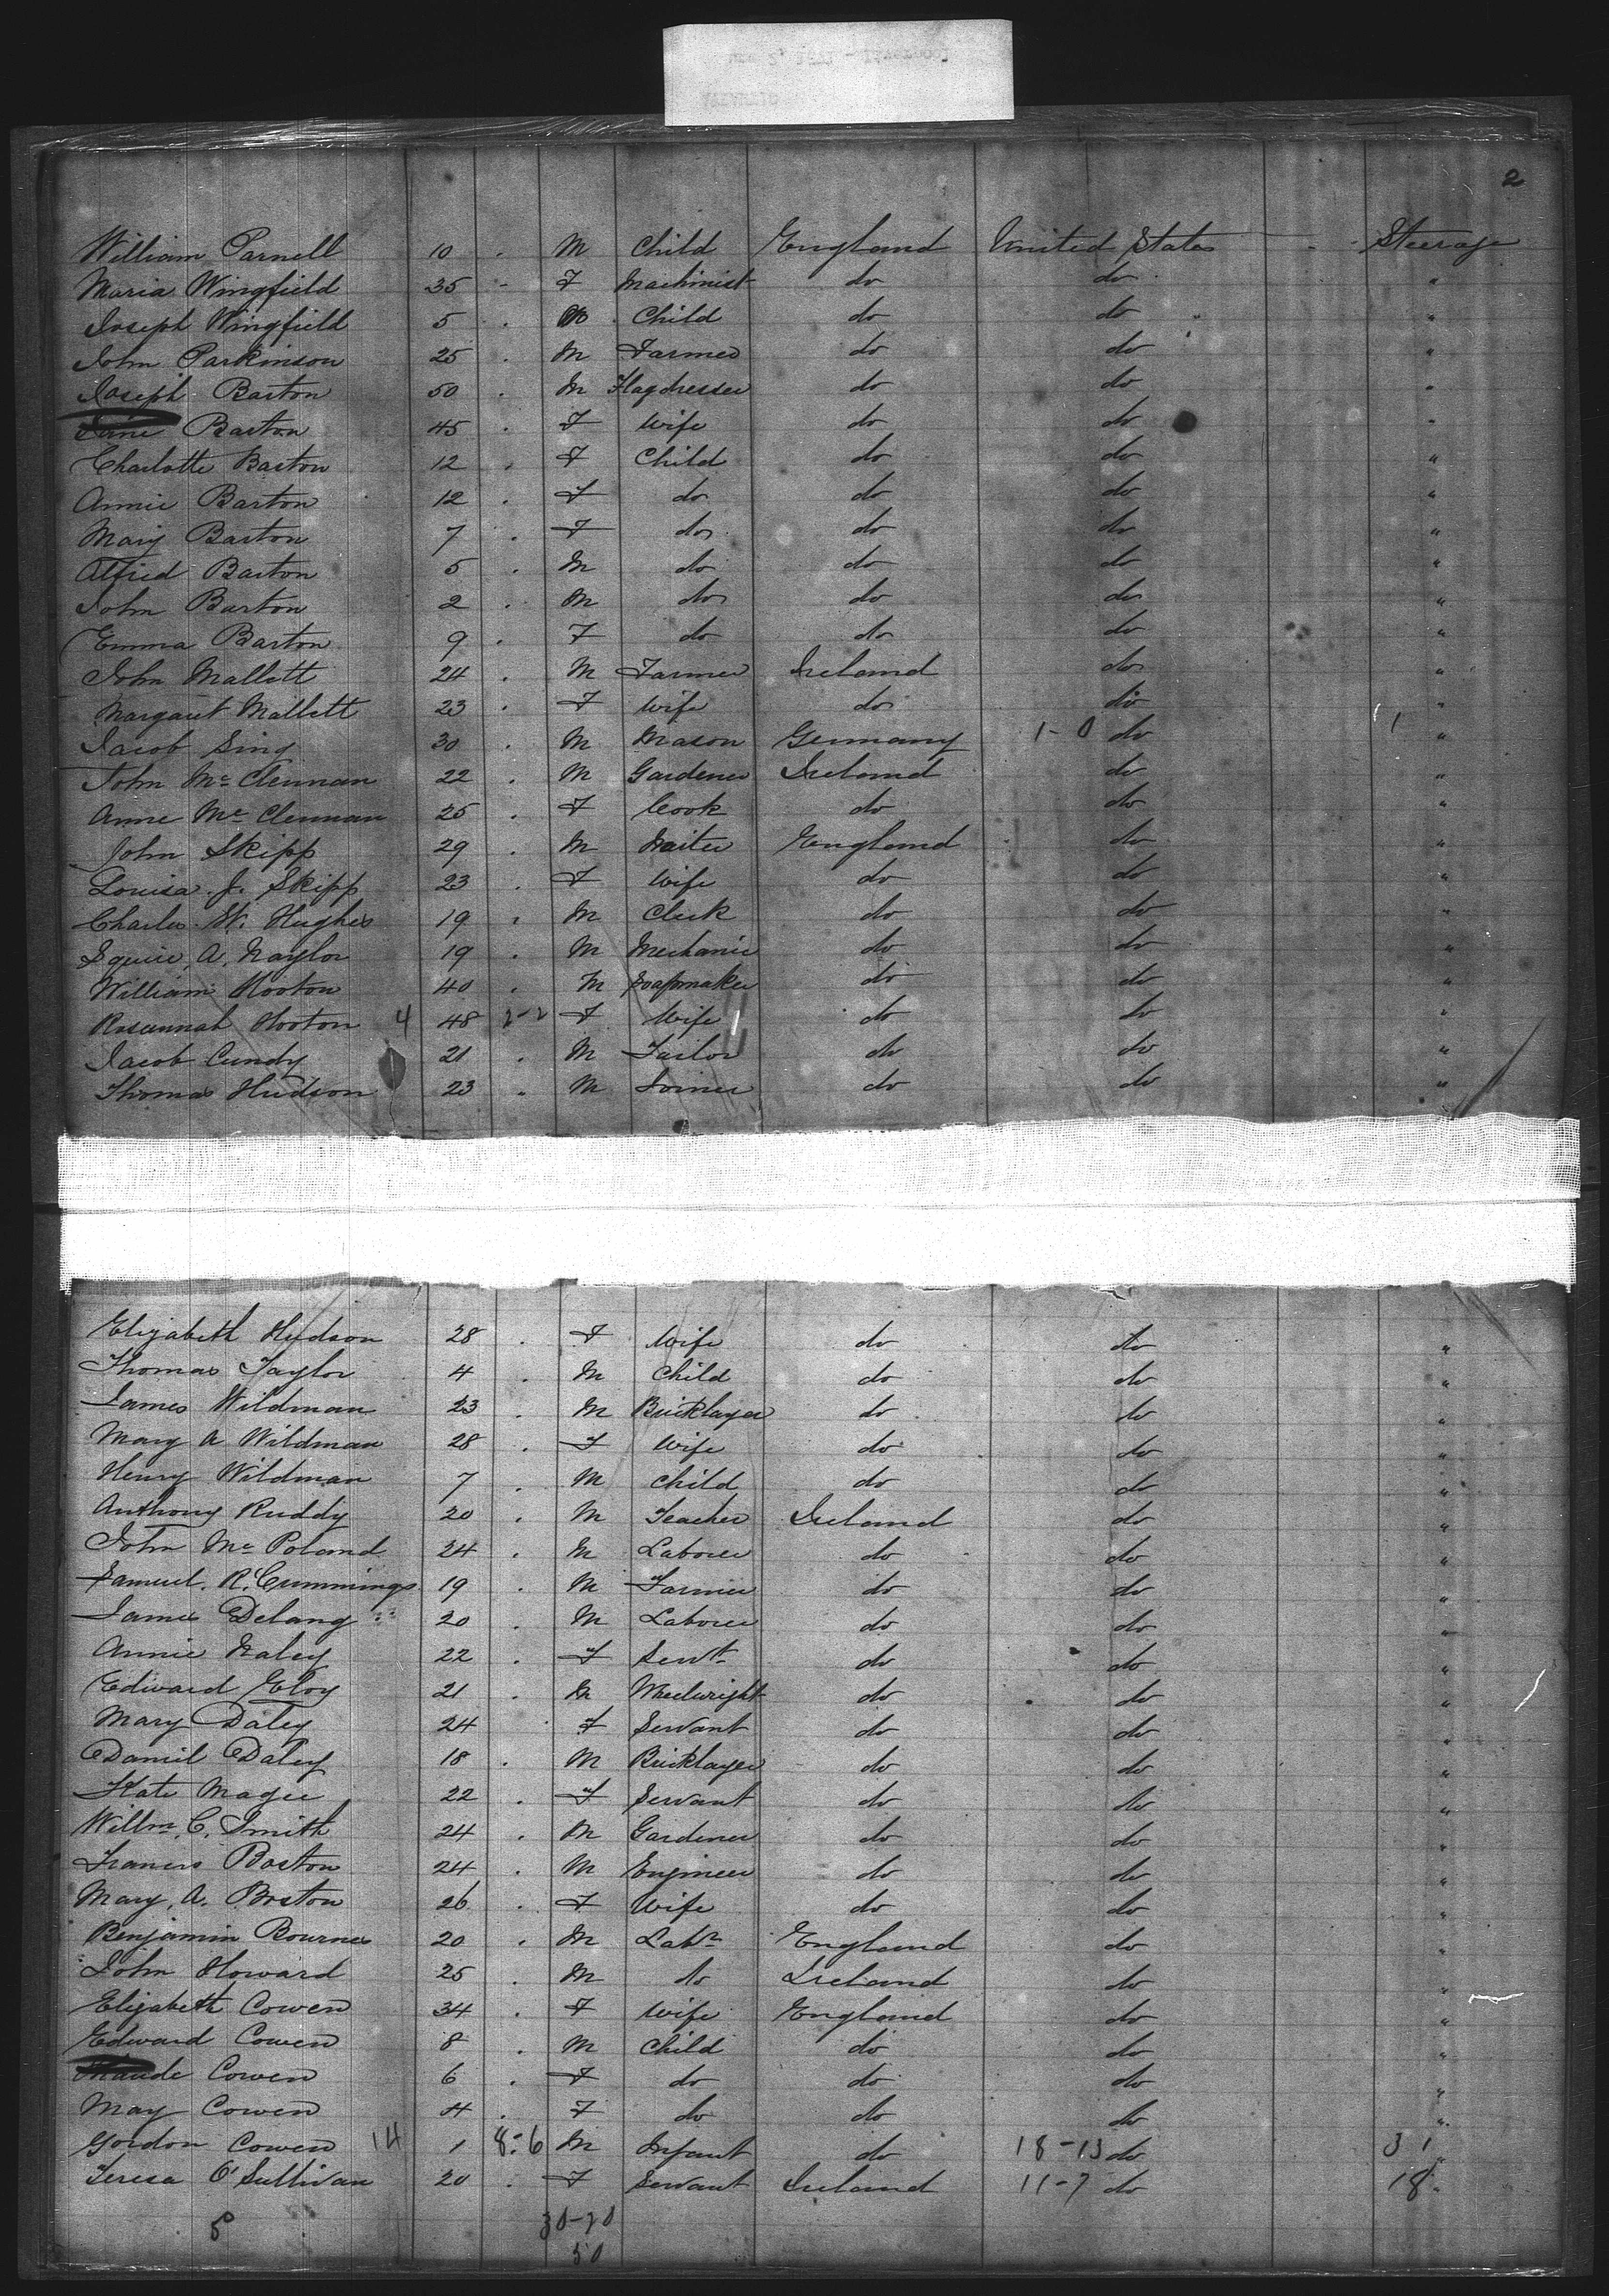 2
William Parnell 10 . M Child England United States Steerage
Maria Wingfield 35 - F Machinist do do "
Joseph Wingfield 5 . M Child do do "
John Parkinson 25 . M Farmer do do "
Joseph Barton 50 . M do do "
Jane Barton 45 . F Wife do do "
Charlotte Barton 12 . F Child do do "
Annie Barton 12 . F do do do "
Mary Barton 7 . F do do do "
Alfred Barton 5 . M do do do "
John Barton 2 . M do do do "
Emma Barton 9 . F do do do "
John Mallett 24 . M Farmer Ireland do "
Margaret Mallett 23 . F Wife do do "
Jacob Sing 30 . M Mason Germany 1-0 do 1 "
John Mc Clennan 22 . M Gardener Ireland do "
Anne Mc Clennan 25 . F Cook do do "
John Skipp 29 . M Waiter England do "
Louisa J. Skipp 23 . F Wife do do "
Charles W. Hughes 19 . M Clerk do do "
Squire A. Naylor 19 . M Mechanic do do "
William Hooton 40 . M Soapmaker do do "
Rosannah Hooton 4 48 2-2 F Wife do do "
Jacob Cundy 21 . M Tailor do do "
Thomas Hudson 23 . M Joiner do do "
Elizabeth Hudson 28 . F Wife do do "
Thomas Taylor 4 . M Child do do "
James Wildman 23 . M Bricklayer do do "
Mary A Wildman 28 . F Wife do do "
Henry Wildman 7 . M Child do do "
Anthony Ruddy 20 . M Teacher Ireland do "
John Mc Poland 24 . M Laborer do do "
Samuel. R. Cummings 19 . M Farmer do do "
James Delany 20 . M Laborer do do "
Annie 22 . F Servt do do "
Edward 21 . M Wheelwright do do "
Mary Daley 24 . F Servant do do "
Daniel Daley 18 . M Bricklayer do do "
Kate Magee 22 . F Servant do do "
Willm. C. Smith 24 . M Gardener do do "
Francis Boston 24 . M Engineer do do "
Mary. A. Boston 26 . F Wife do do "
Benjamin Bournes 20 . M Labr England do "
John Howard 25 . M do Ireland do "
Elizabeth Cowen 34 . F Wife England do "
Edward Cowen 8 . M Child do do "
Maude Cowen 6 . F do do do "
May Cowen 4 . F do do do "
Gordon Cowen 14 1 8-6 M Infant do 18-13 do 31 "
Teresa O'Sullivan 20 . F Servant Ireland 11-7 do 18 "
30-20
50